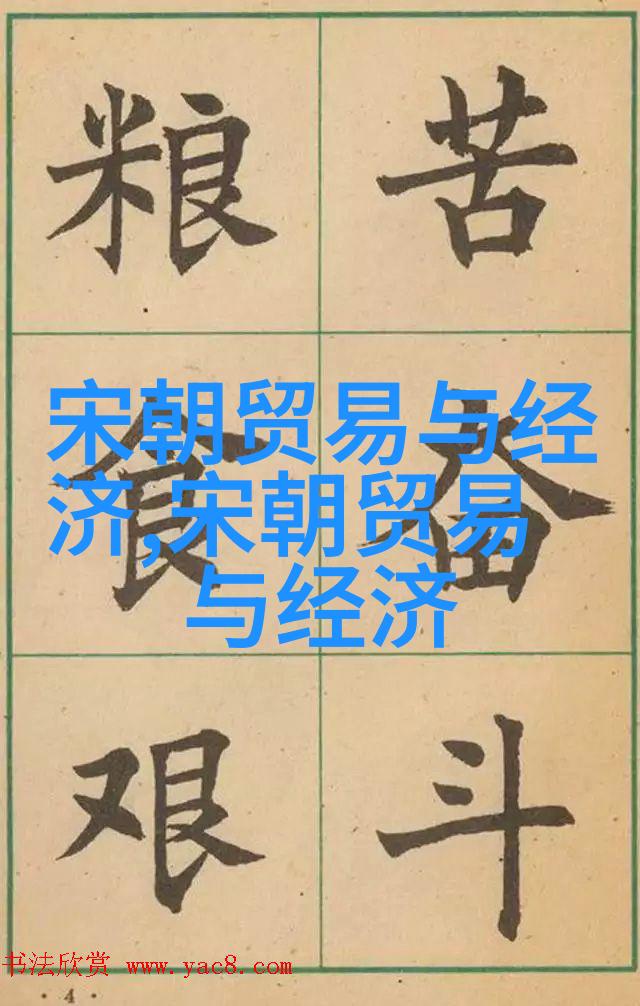 粮食艰
苦奋斗
宋朝贸易与经
济,宋朝贸易
与经济
书法欣赏 www.yac8.com
·4·